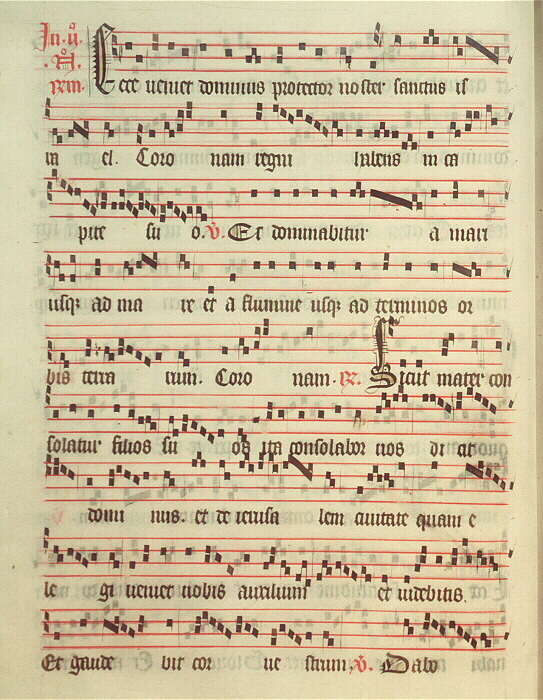 Ecce veniet dominus protector noster sanctus is
ra el. Coro nam regni habens in ca
pite su o. V. Et dominabitur a mari
usqz ad ma re et a flumine usqz ad terminos or
bis terra rum. Coro nam. R. Sicut mater con
solatur filios su os ita consolabor vos dicit
domi nus. et de ierusa lem civitate quam e
le gi veniet vobis auxilium et videbitis.
Et gaude bit cor ve strum. V. Dabo